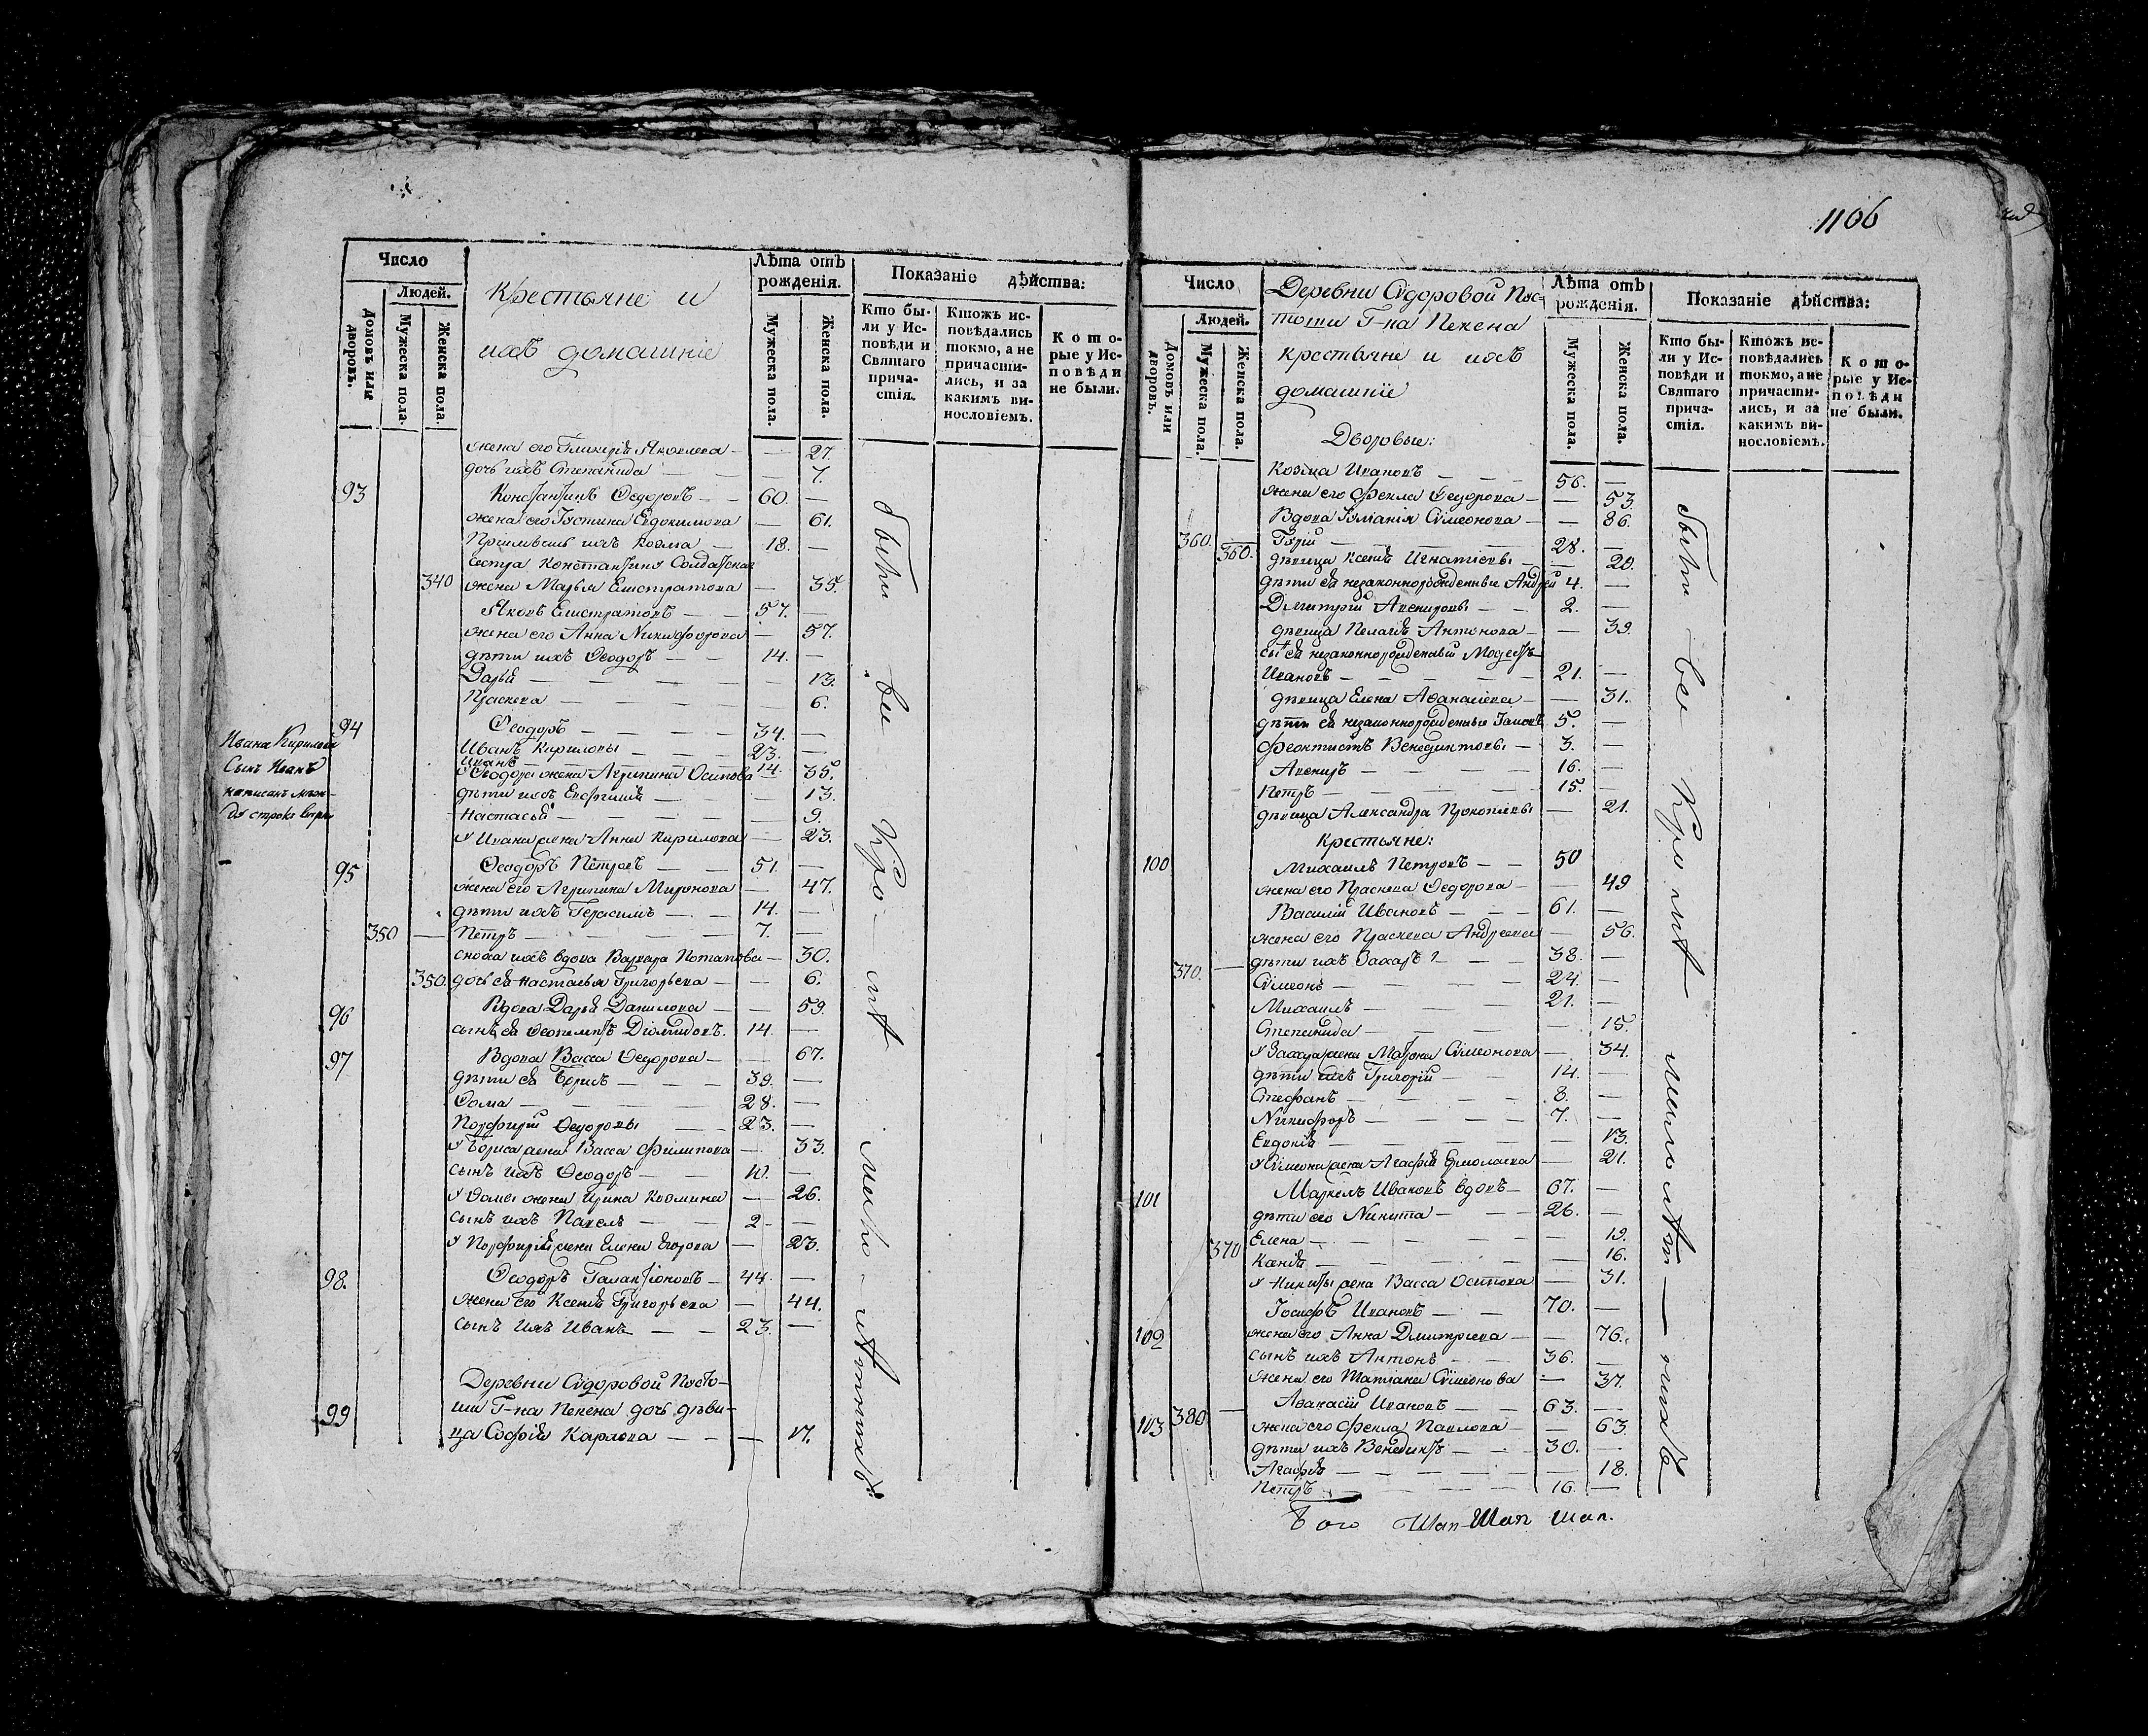 1106
Число
Людей.
Домовъ или дворовъ.
Мужеска пола.
Женска пола.
Крестьяне и
ихъ домашніе
Лѣта отъ рожденія.
Мужеска пола.
Женска пола.
Показаніе дѣйства:
Кто бы-
ли у Ис-
повѣди и
Святаго
прича-
стія.
Ктожъ ис-
повѣдались
токмо, а не
причасти-
лись, и за
какимъ ви-
нословіемъ.
Кото-
рые у Ис-
повѣди
не были.
жена его Гликерія Яковлева — — 27
дочь ихъ Степанида — — 7.
93 Константинъ Ѳедоровъ — — 60. —
жена его Іустина Евдокимова — 61.
Пріимышъ ихъ Козма — 18. —
Сестра Константина Солдатская
340 жена Марья Елистратова — 35.
Яковъ Елистратовъ — — 57. —
жена его Анна Никифорова — 57.
дѣти ихъ Ѳеодоръ — — 14. —
Дарья — — — — 13.
Праскева — — — — 6.
94 Ѳеодоръ — — — 34. —
Иванъ Кириловы — — 23. —
Иванъ 14.
У Ѳеодора жена Агрипина Осипова 35.
дѣти ихъ Евфимія — — — 13.
Настасья — — — — 9.
У Ивана жена Анна Кирилова — 23.
Ивана Кирилова
Сынъ Иванъ
написанъ меж-
95 Ѳеодоръ Петровъ — — 51. —
жена его Агрипина Миронова — 47.
дѣти ихъ Герасимъ — — 14. —
350 — Петръ — — — 7. —
сноха ихъ вдова Варвара Потапова — 30.
350. дочь ея Настасья Григорьева — — 6.
96 Вдова Дарья Данилова — — 59.
сынъ ея Ѳеопемптъ Діомидовъ. 14. —
97 Вдова Васса Ѳедорова — — 67.
дѣти ея Борисъ — — — 39. —
Ѳома — — — — 28. —
Порфирій Ѳедоровы — — 23. —
У Бориса жена Васса Филипова — 33.
сынъ ихъ Ѳеодоръ — — 10. —
У Ѳомы жена Ирина Козмина — 26.
сынъ ихъ Павелъ — — 2 — —
У Порфирія жена Елена Егорова — 23.
98. Ѳеодоръ Галактіоновъ — 44. —
жена его Ксенія Григорьева — 44.
сынъ ихъ Иванъ — — 23. —
Деревни Сидоровой Пусто-
ши Г-на Пекена дочь дѣви-
99 ца Софія Карлова — — — 17.
были вси
Число
Людей.
Домовъ или дворовъ.
Мужеска пола.
Женска пола.
Деревни Сидоровой Пус-
тоши Г-на Пекена
крестьяне и ихъ
домашніе
Лѣта отъ рожденія.
Мужеска пола.
Женска пола.
Показаніе дѣйства:
Кто бы-
ли у Ис-
повѣди и
Святаго
прича-
стія.
Ктожъ ис-
повѣдались
токмо, а не
причасти-
лись, и за
какимъ ви-
нословіемъ.
Кото-
рые у Ис-
повѣди
не были.
Дворовые:
Козма Ивановъ — — — 56. —
жена его Фекла Ѳедорова — — 53.
Вдова Іуліанія Симеонова — — 86.
360. 360. Гурій — — — 28. —
дѣвица Ксенія Игнатіевы — — 20.
дѣти ея незаконнорожденные Андрей 4. —
Димитрій Авенировы — — 2. —
дѣвица Пелагія Антонова — — 39.
сынъ ея незаконнорожденный Модестъ
Ивановъ — — — 21. —
дѣвица Елена Аѳанасіева — — 31.
дѣти ея незаконнорожденные Іаковъ 5. —
Феоктистъ Венедиктовы — 3. —
Авениръ — — — 16. —
Петръ — — — — 15. —
дѣвица Александра Прокопіевы — 21.
Крестьяне:
100 Михаилъ Петровъ — — 50
жена его Праскева Ѳедорова — — 49
Василій Ивановъ — — 61. —
жена его Праскева Андреева — 56.
370. — дѣти ихъ Захаръ — — 38. —
Симеонъ — — — 24. —
Михаилъ — — — 21. —
Степанида — — — — 15.
У Захара жена Матрона Симеонова — 34.
дѣти ихъ Григорій — — 14. —
Стефанъ — — — — 8. —
Никифоръ — — — 7. —
Евдокія — — — — 13.
У Симеона жена Агафія Ермолаева — 21.
101 Маркелъ Ивановъ вдовъ — 67. —
дѣти его Никита — — — 26. —
Елена — — — — 19.
370 Ксенія — — — — 16.
У Никиты жена Васса Осипова — 31.
102 Іосифъ Ивановъ — — 70. —
жена его Анна Дмитріева — — 76.
сынъ ихъ Антонъ — — 36. —
жена его Татіана Симеонова — 37.
103 380. — Аѳанасій Ивановъ — — 63. —
жена его Фекла Павлова — — 63.
дѣти ихъ Венедиктъ — — 30. —
Агафія — — — — 18.
Петръ — — — — 16. —
были вси